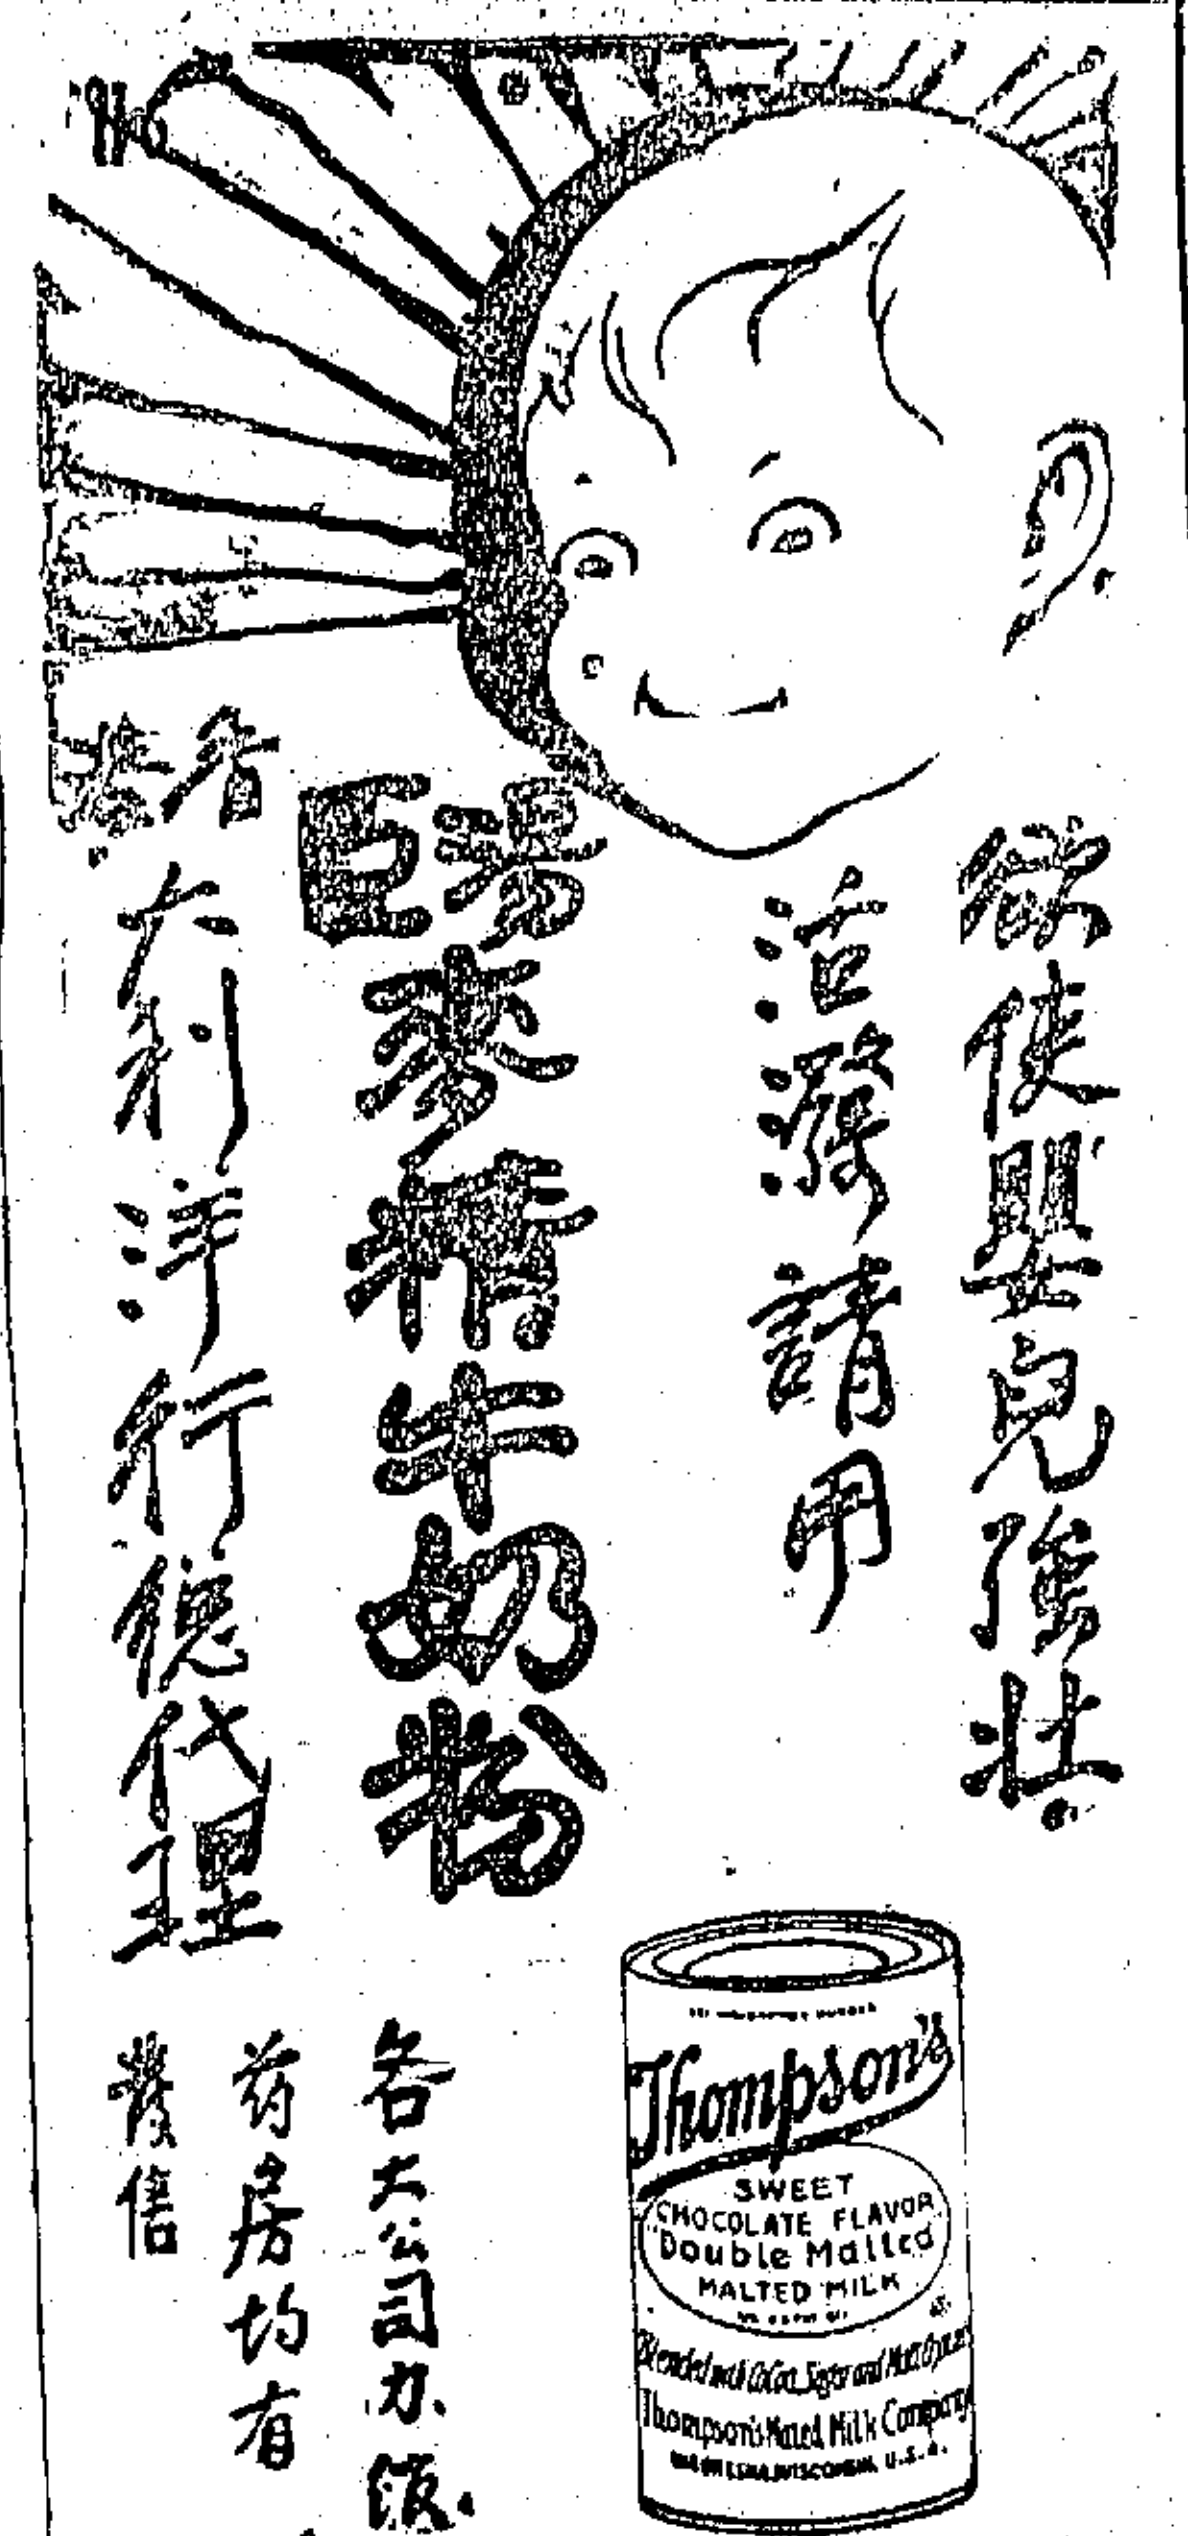 欲使嬰兒強壯
活潑請用
湯臣
麥精牛奶粉
香港
大利洋行總代理
各大公司办舘
药房均有
發售
Thompson's
SWEET
CHOCOLATE FLAVOR
"Double Malted"
MALTED MILK
Blended with Cocoa, Sugar and Malt
Thompson's Malted Milk Company
WAUKESHA, WISCONSIN, U.S.A.